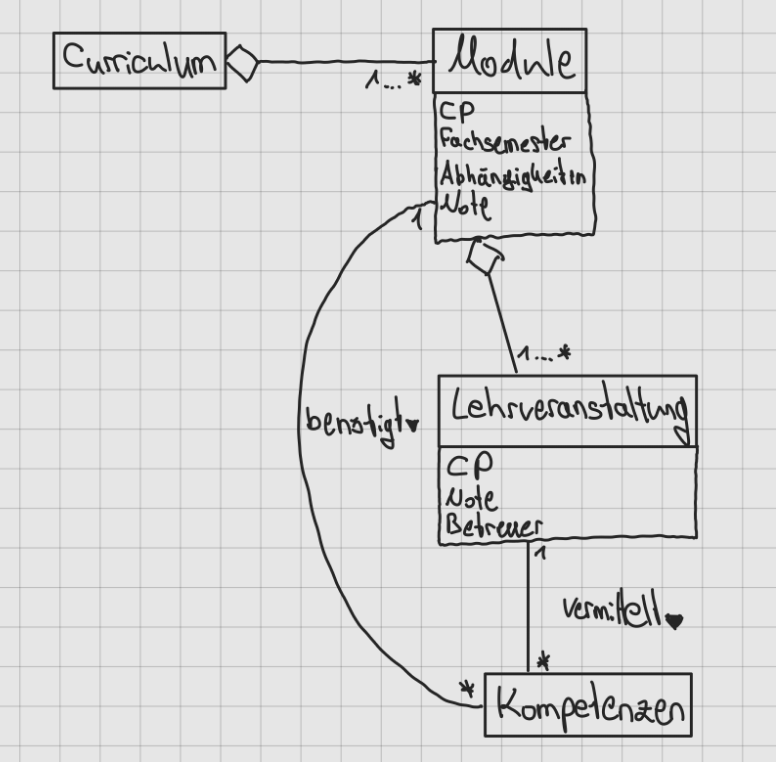 Curriculum
1...*
Module
CP
Fachsemester
Abhängigkeiten
Note
1
1...*
benötigt▼
Lehrveranstaltung
CP
Note
Betreuer
1
vermittelt▼
*
*
Kompetenzen